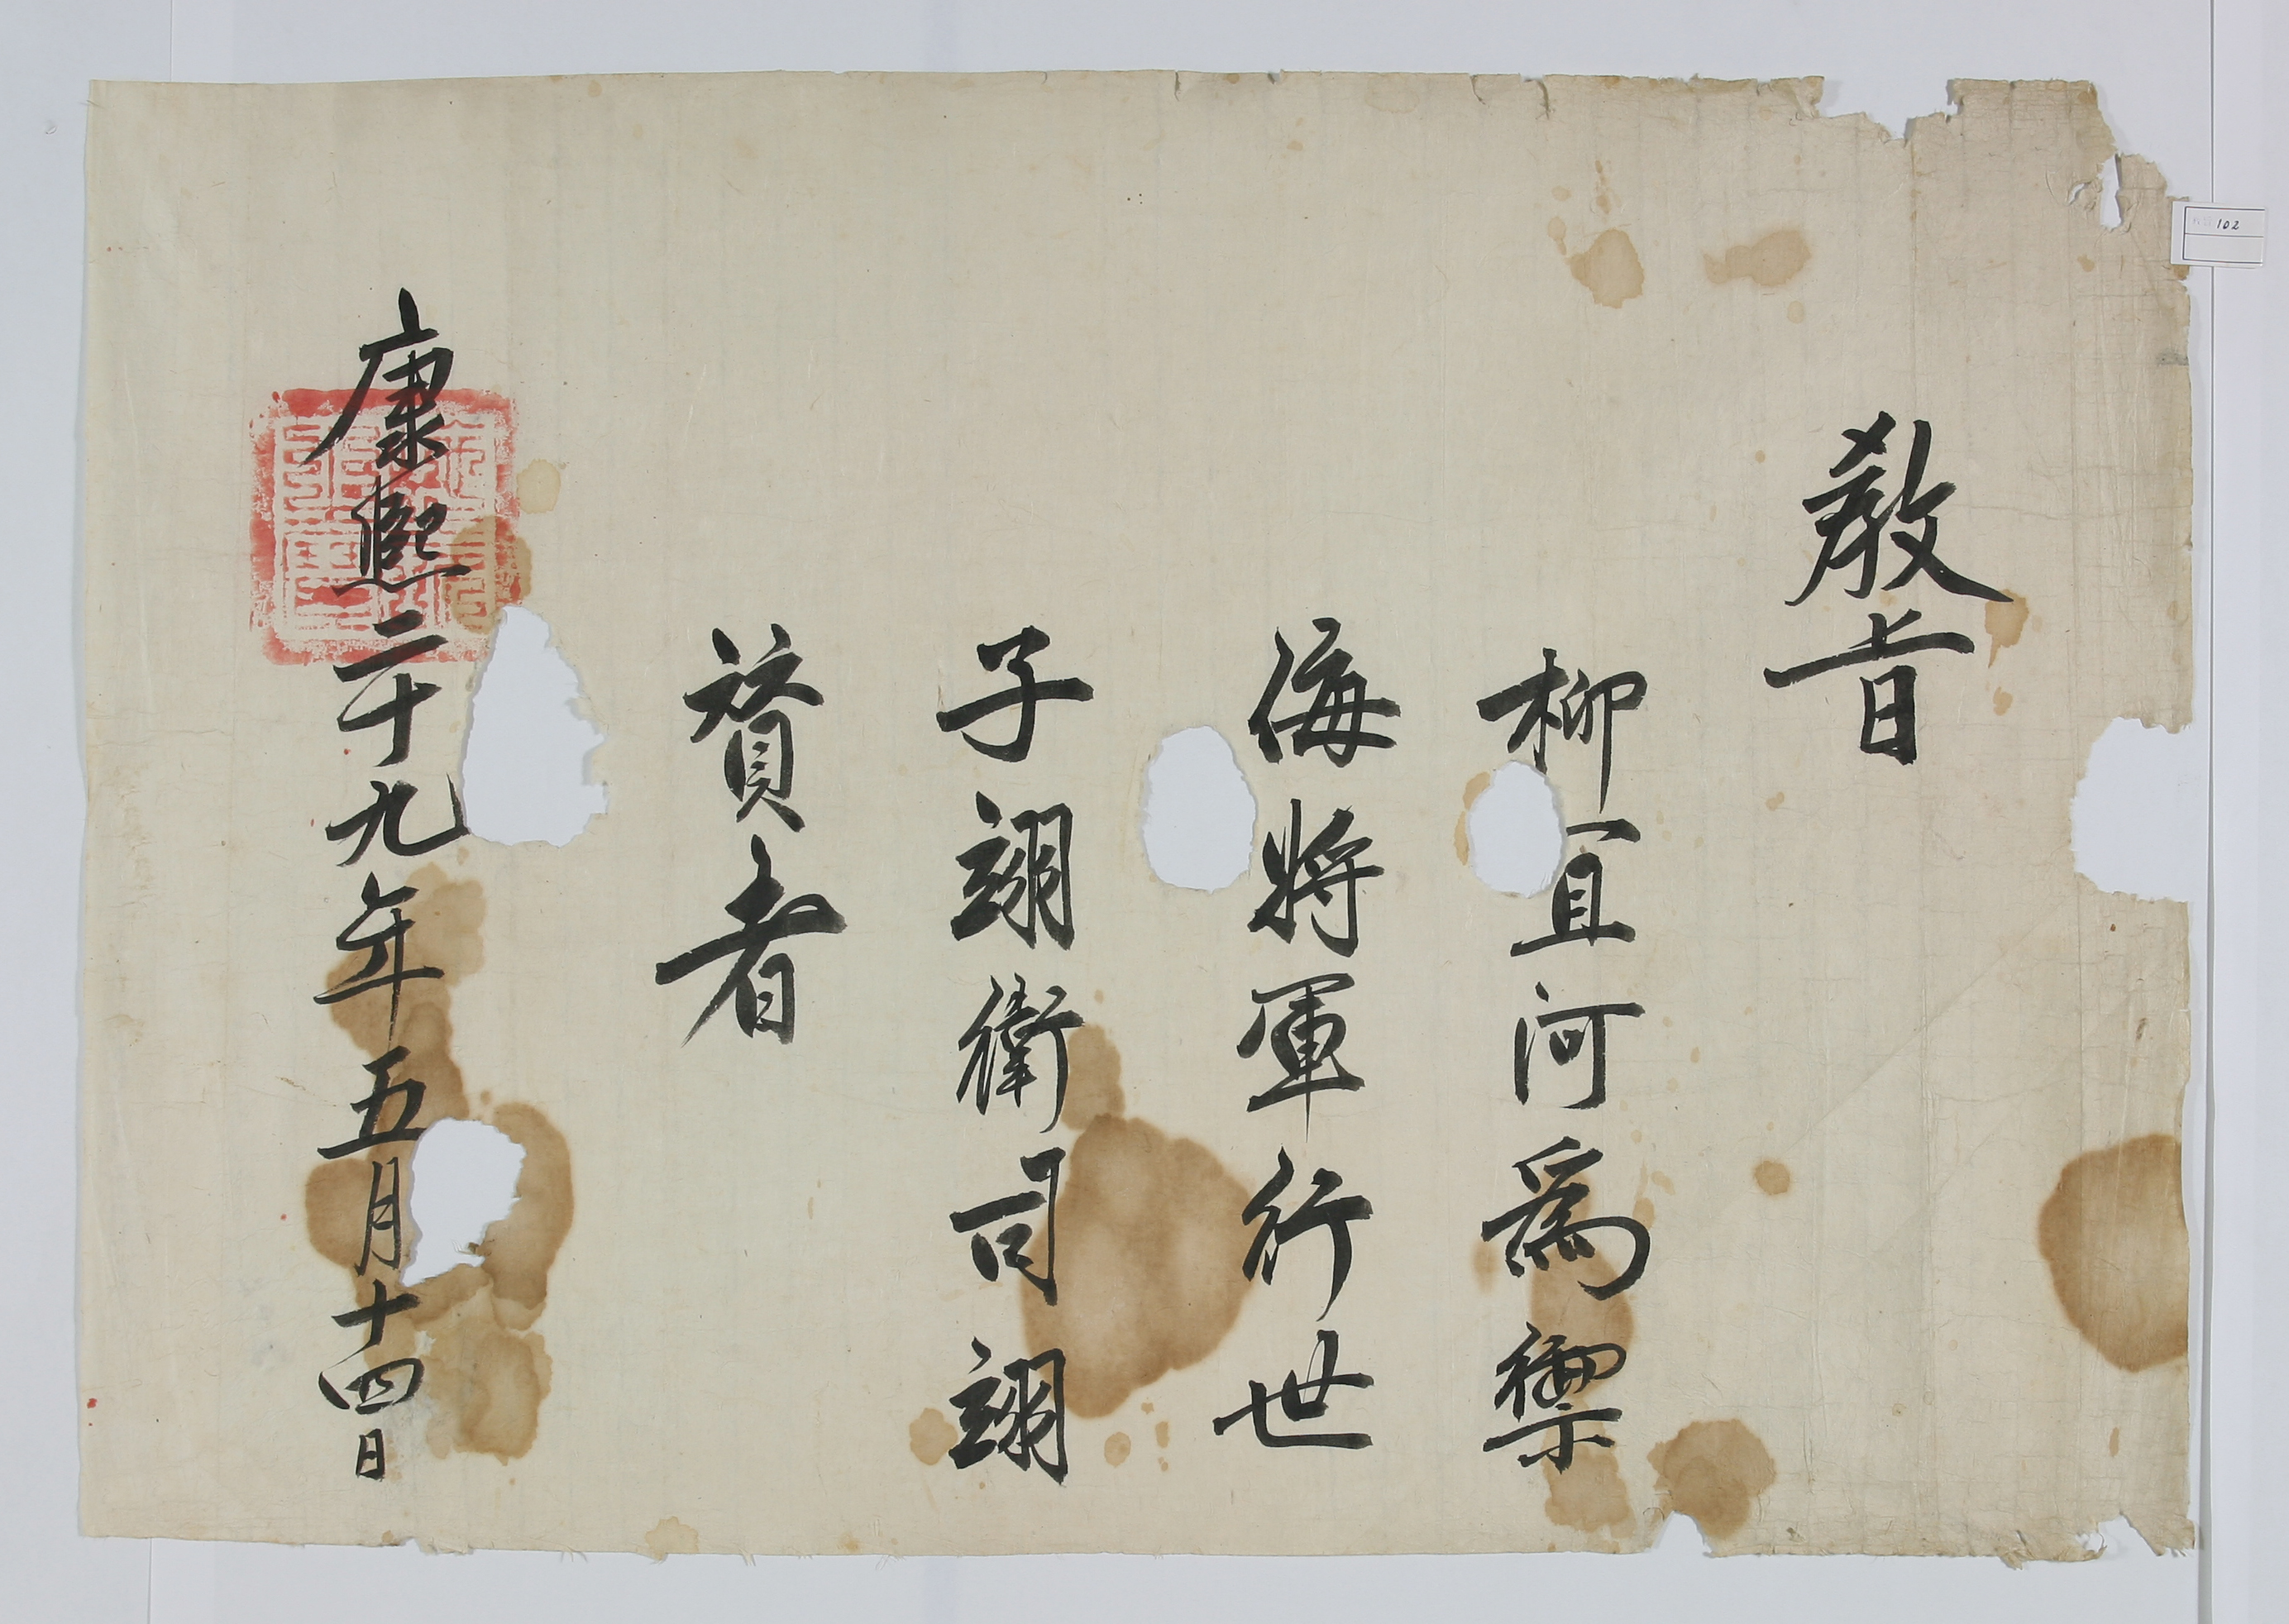 敎旨
柳宜河爲禦
侮將軍行世
子翊衛司翊
贊者
康熙二十九年五月十四日
102